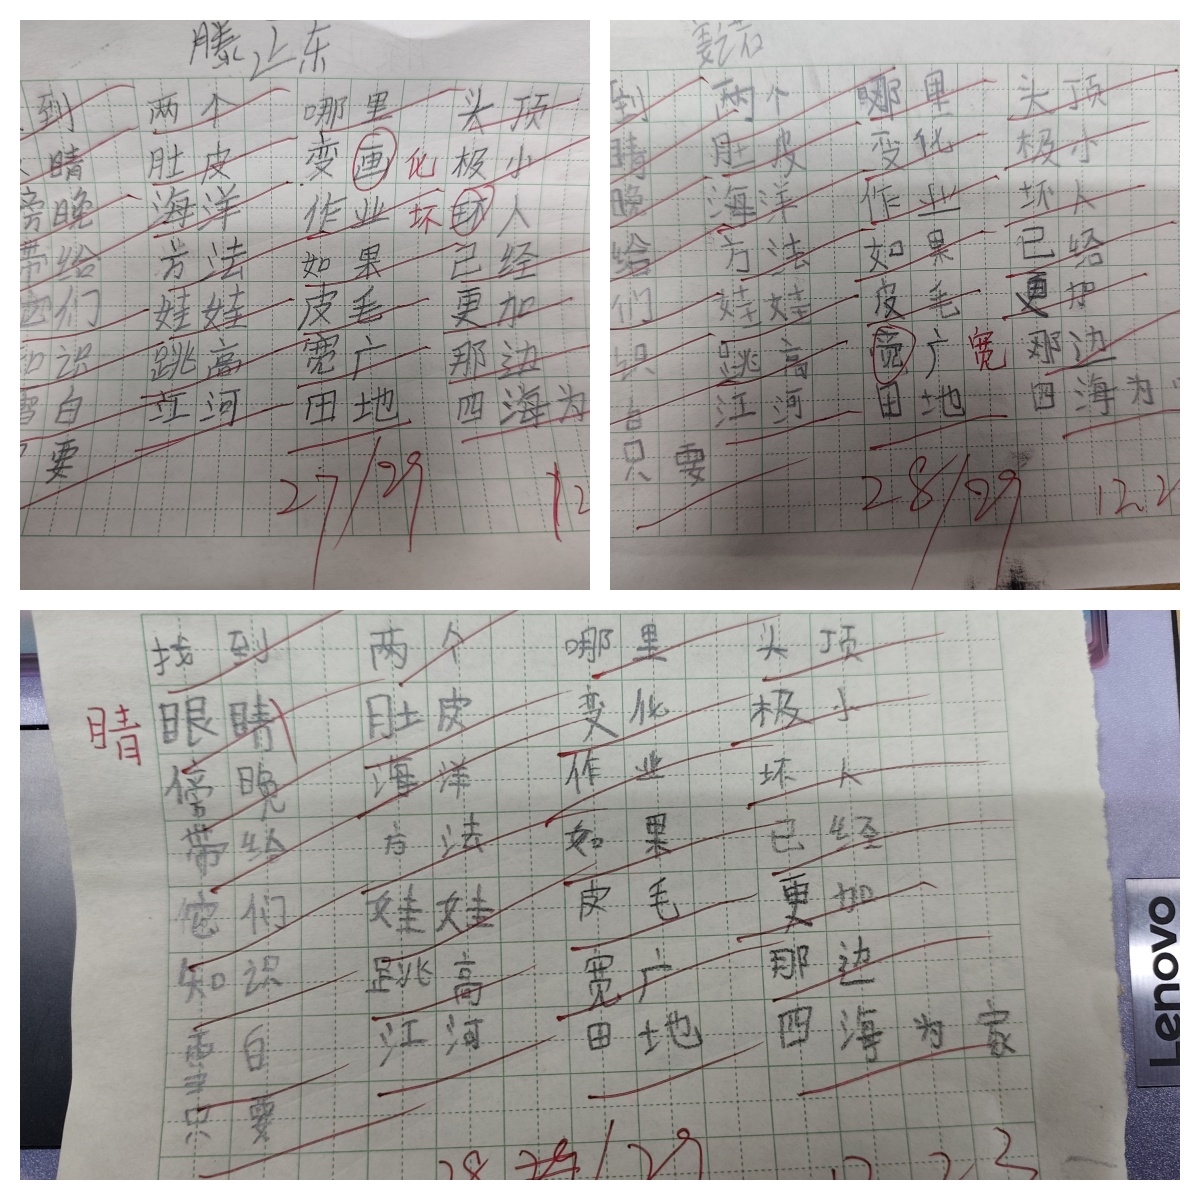 到 两个 哪里 头顶
睛 肚皮 变画 化 极小
傍晚 海洋 作业 坏 环人
带给 方法 如果 已经
们 娃娃 皮毛 更加
识 跳高 宽广 那边
白 江河 田地 四海为
要
27/29
到 两个 哪里 头顶
睛 肚皮 变化 极小
晚 海洋 作业 坏人
给 方法 如果 已给
们 娃娃 皮毛 更加
识 跳高 广 宽 那边
江河 田地 四海为
只要
28/29 12.2
找到 两个 哪里 头顶
睛 眼睛 肚皮 变化 极小
傍晚 海洋 作业 坏人
带给 方法 如果 已经
它们 娃娃 皮毛 更加
知识 跳高 宽广 那边
雪白 江河 田地 四海为家
只要
28 /29 12.23
Lenovo